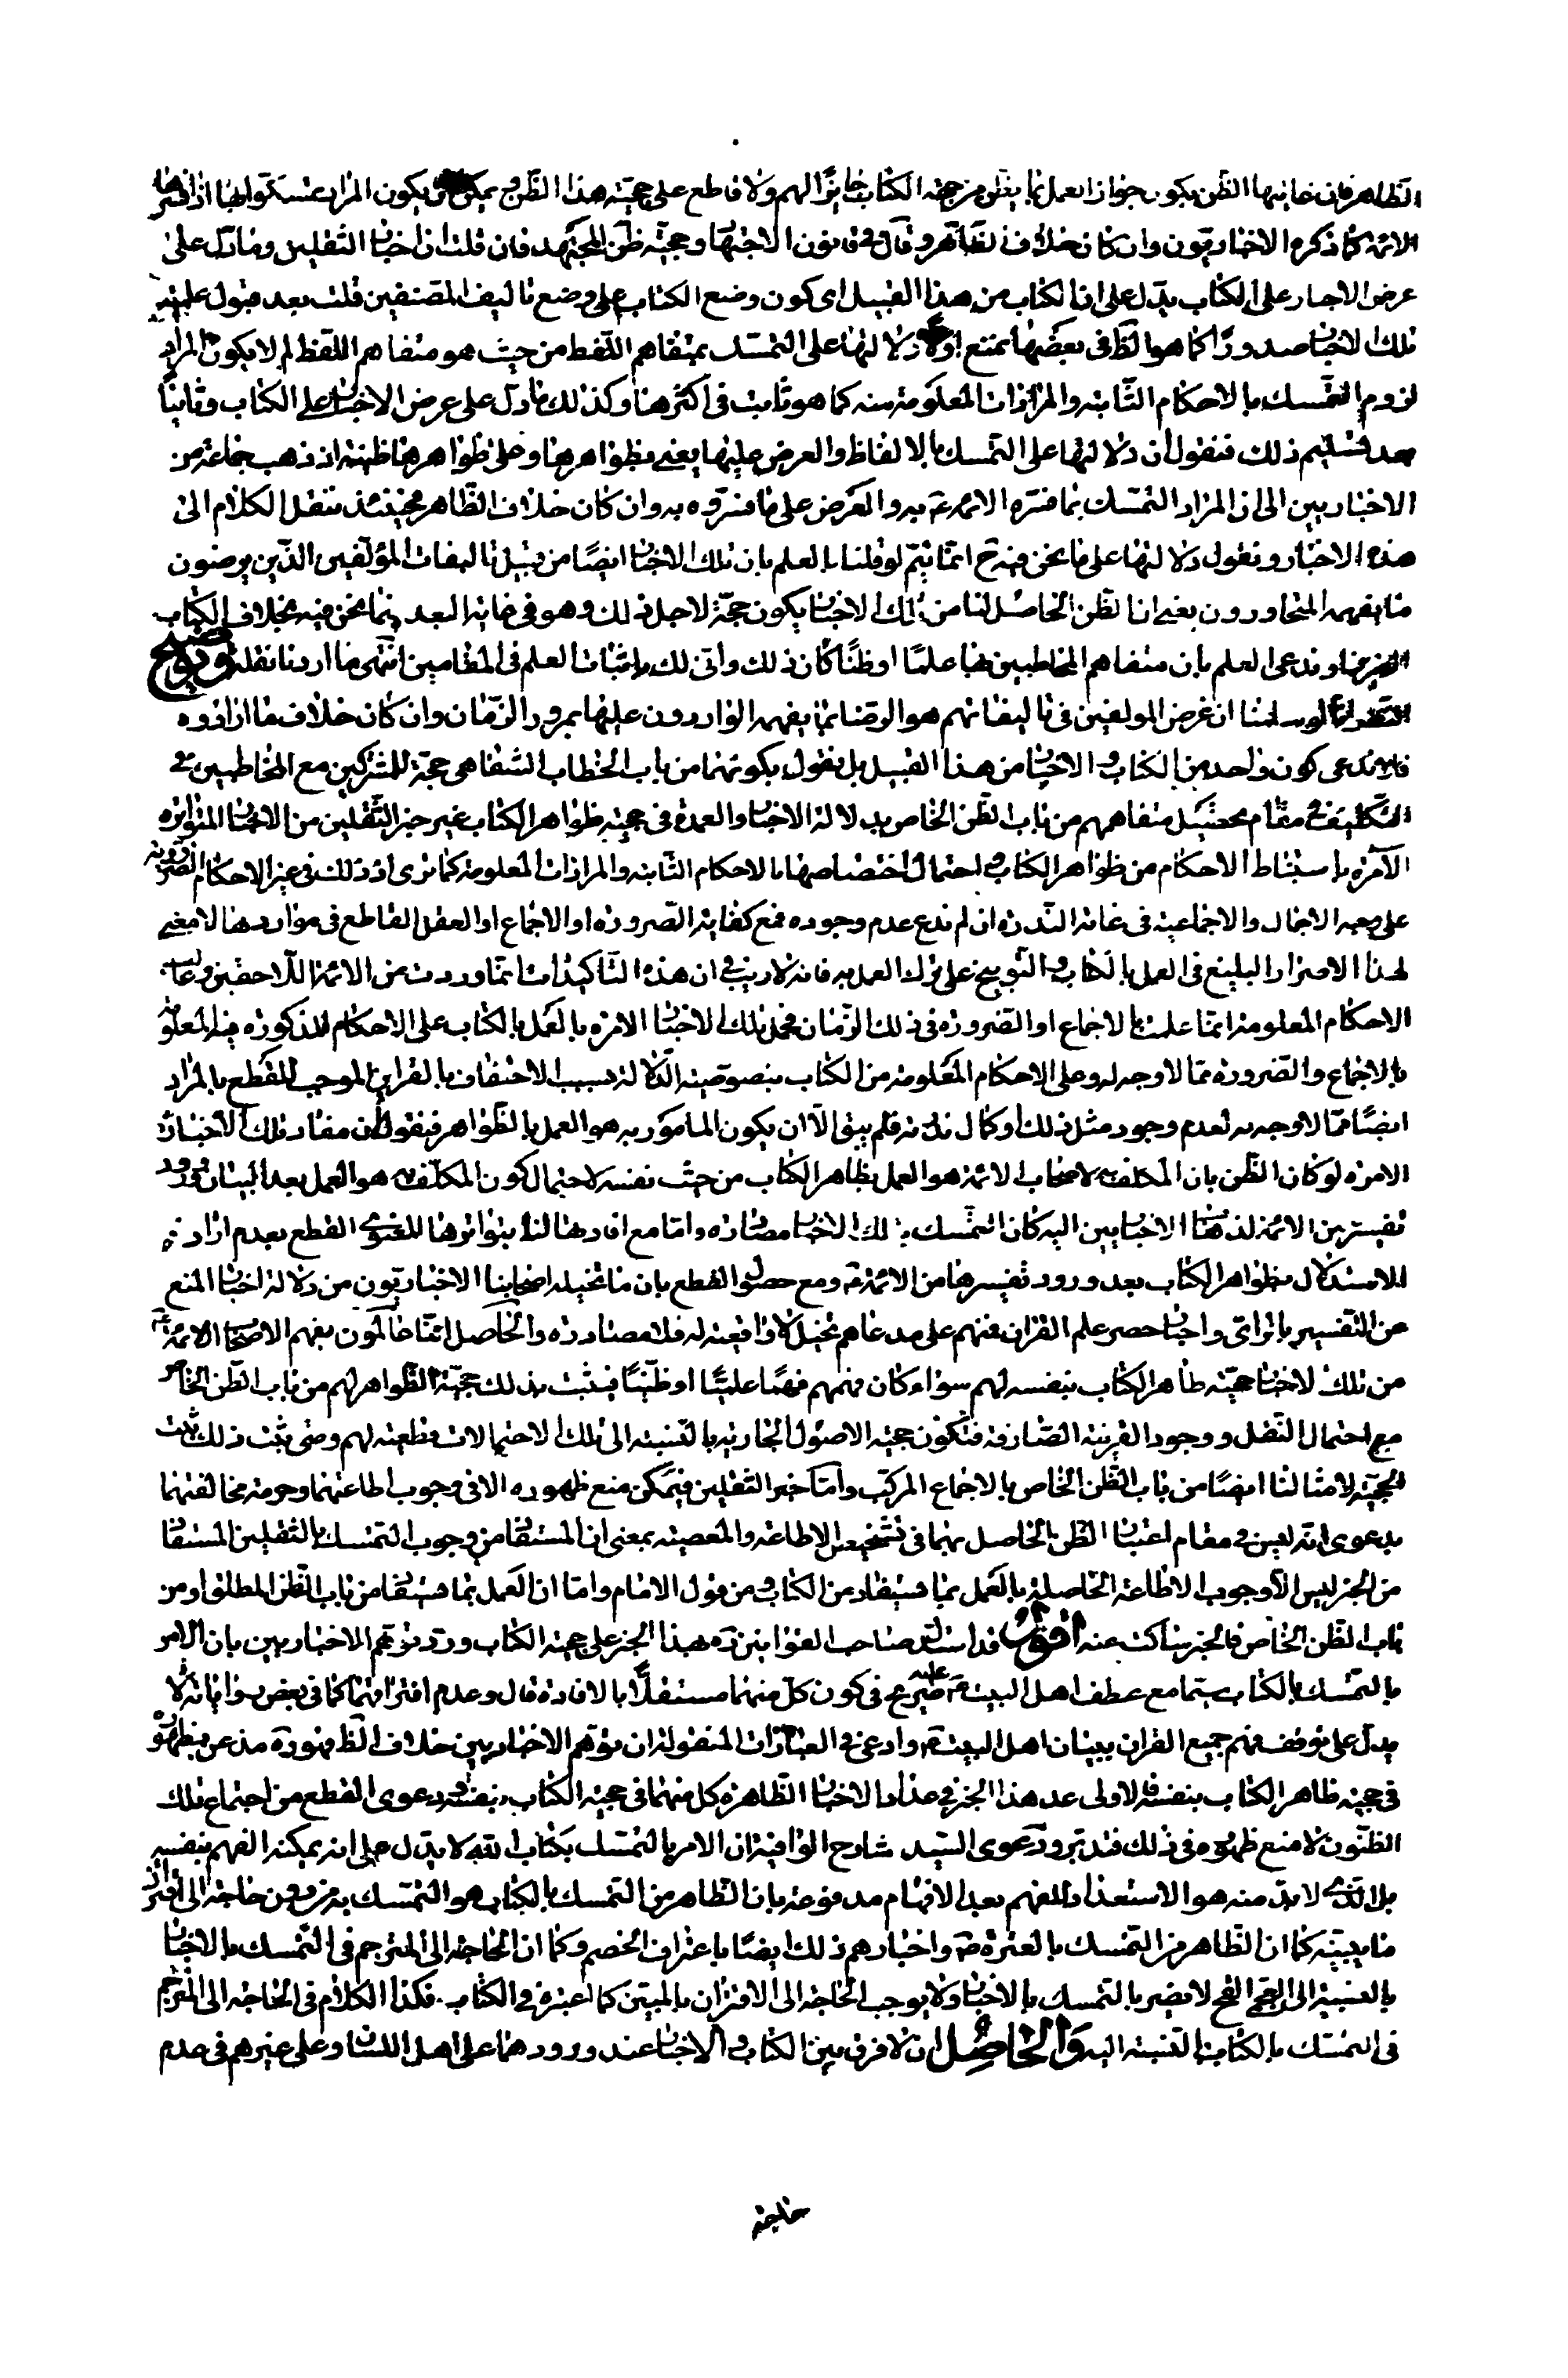 الظاهر فان غايتها الظن بكون جواز العمل بما يظن من جهة الكتاب جايزا لهم ولا قاطع على حجية هذا الظن يمكن يكون المراد تمسكوا بها اذا فسرها
الائمة كما ذكره الاخباريون وان كان خلاف الظاهر وقال في قانون الاجتهاد وحجية ظن المجتهد فان قلت ان اخبار الثقلين وما دل على
عرض الاخبار على الكتاب يدل على ان الكتاب من هذا القبيل اى كون وضع الكتاب على وضع تاليف المصنفين قلت بعد قبول علمية
تلك الاخبار صدورا كما هو الظ فى بعضها نمنع اولا دلالتها على التمسك بمتفاهم اللفظ من حيث هو متفاهم اللفظ لم لا يكون المراد
لزوم التمسك بالاحكام الثابتة والمرادات المعلومة منه كما هو ثابت فى اكثرها وكذلك ما دل على عرض الاخبار على الكتاب وثانيا
بعد تسليم ذلك فنقول ان دلالتها على التمسك بالالفاظ والعرض عليها يعنى بظواهرها وعلى ظواهرها ظنية اذ ذهب جماعة من
الاخباريين الى ان المراد التمسك بما فسره الائمة ع به والعرض على ما فسروه به وان كان خلاف الظاهر فحينئذ ننقل الكلام الى
هذه الاخبار ونقول دلالتها على ما نحن فيه ح انما يتم لو قلنا بالعلم بان تلك الاخبار ايضا من قبيل تاليفات المؤلفين الذين يرضون
ما يفهمه المتحاورون يعنى ان الظن الحاصل لنا من تلك الاخبار يكون حجة لاجل ذلك وهو فى غاية البعد فيما نحن فيه بخلاف الكتاب
العزيز او ندعى العلم بان متفاهم المخاطبين بها علما او ظنا كان ذلك وانى لك باثبات العلم فى المقامين انتهى ما اردنا نقله وتوضيح
النظر انا لو سلمنا ان غرض المولفين فى تاليفاتهم هو الرضا بما يفهمه الواردون عليها بمرور الزمان وان كان خلاف ما ارادوه
فلا ندعى كون واحد من الكتاب والاخبار من هذا القبيل بل نقول بكونهما من باب الخطاب الشفاهى حجة للمشركين مع المخاطبين فى
التكليف فى مقام تحصيل متفاهمهم من باب الظن الخاص بدلالة الاخبار والعمدة فى حجية ظواهر الكتاب غير خبر الثقلين من الاخبار المتواترة
الآمرة باستنباط الاحكام من ظواهر الكتاب واحتمال اختصاصها بالاحكام الثابتة والمرادات المعلومة كما ترى اذ ذلك فى غير الاحكام الضرورية
على وجه الاجمال والاجماعية فى غاية الندرة ان لم ندع عدم وجوده فمع كفاية الضرورة او الاجماع او العقل القاطع فى مواردها لا معنى
لهذا الاصرار البليغ فى العمل بالكتاب والتوبيخ على ترك العمل به فانه لا ريب فى ان هذه التاكيدات انما وردت من الائمة اللاحقين وغالب
الاحكام المعلومة انما علمت بالاجماع او الضرورة فى ذلك الزمان فحمل تلك الاخبار الامرة بالعمل بالكتاب على الاحكام المذكورة فيه المعلومة
بالاجماع والضرورة مما لا وجه له وعلى الاحكام المعلومة من الكتاب بنصوصية الدلالة بسبب الاحتفاف بالقراين الموجب للقطع بالمراد
ايضا مما لا وجه له لعدم وجود مثل ذلك او كمال ندرته فلم يبق الا ان يكون المامور به هو العمل بالظواهر فنقول ان مفاد تلك الاخبار
الامرة لو كان الظن بان المكلف به لاصحاب الائمة هو العمل بظاهر الكتاب من حيث نفسه لاحتمال كون المكلف به هو العمل بعد البيان وورود
تفسير من الائمة لذهاب الاخباريين اليه كان التمسك بتلك الاخبار مصادرة واما مع افادتها لنا بتواترها المعنوى القطع بعدم ارادة
الاستدلال بظواهر الكتاب بعد ورود تفسيرها من الائمة ع ومع حصول القطع بان ما تخيله اصحابنا الاخباريون من دلالة اخبار المنع
عن التفسير بالراى واخبار حصر علم القران فيهم على مدعاهم تخيل لا واقعية له فلا مصادرة والحاصل اننا عالمون بفهم الاصحاب الائمة ع
من تلك الاخبار حجية ظاهر الكتاب بنفسه لهم سواء كان فهمهم فهما علميا او ظنيا فيثبت بذلك حجية الظواهر لهم من باب الظن الخاص
مع احتمال النقل ووجود القرينة الصارفة فتكون حجية الاصول الجارية بالنسبة الى تلك الاحتمالات قطعية لهم ومتى يثبت ذلك ثبت
الحجية لامثالنا ايضا من باب الظن الخاص بالاجماع المركب واما خبر الثقلين فيمكن منع ظهوره الا فى وجوب اطاعتهما وحرمة مخالفتهما
بدعوى انه ليس فى مقام اعتبار الظن الحاصل بهما فى تشخيص الاطاعة والمعصية بمعنى ان المستفاد من وجوب التمسك بالثقلين المستفاد
من الخبر ليس الا وجوب الاطاعة الحاصلة بالعمل بما يستفاد من الكتاب ومن قول الامام واما ان العمل بما يستفاد من باب الظن المطلق او من
باب الظن الخاص فالخبر ساكت عنه اقول قد استدل صاحب القوانين ره بهذا الخبر على حجية الكتاب ورد توهم الاخباريين بان الامر
بالتمسك بالكتاب سيما مع عطف اهل البيت ع عليه صريح فى كون كل منهما مستقلا بالافادة قال وعدم افتراقهما كما فى بعض رواياته لا
يدل على توقف فهم جميع القران ببيان اهل البيت ع وادعى فى العبارات المنقولة ان توهم الاخباريين خلاف الظ فهو ره مذعن بظهوره
فى حجية ظاهر الكتاب بنفسه فالاولى عد هذا الخبر فى عداد الاخبار الظاهرة كل منهما فى حجية الكتاب بنفسه ودعوى القطع من اجتماع تلك
الظنون لا منع ظهوره فى ذلك فتدبر ودعوى السيد شارح الوافية ان الامر بالتمسك بكتاب الله لا يدل على انه يمكنه الفهم بنفسه
بل الذى لا بد منه هو الاستعداد للفهم بعد الافهام مدفوعة بان الظاهر من التمسك بالكتاب هو التمسك به من دون حاجة الى اقتران
ما يبينه كما ان الظاهر من التمسك بالعترة ع واخبارهم ذلك ايضا باعتراف الخصم وكما ان الحاجة الى المترجم فى التمسك بالاخبار
بالنسبة الى العجمى القح لا يضر بالتمسك بالاخبار ولا يوجب الحاجة الى الاقتران بالمبين كما اعتبره فى الكتاب فكذا الكلام فى الحاجة الى المترجم
فى التمسك بالكتاب بالنسبة اليه والحاصل ان لا فرق بين الكتاب والاخبار عند ورودهما على اهل اللسان وعلى غيرهم فى عدم
حاجة